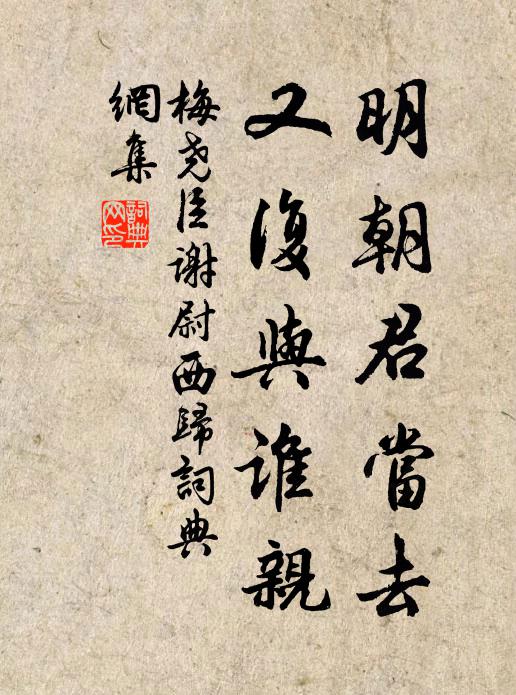 明朝君當去
又復與誰親
梅尧臣谢尉西歸詞典
網集
詞典
网印